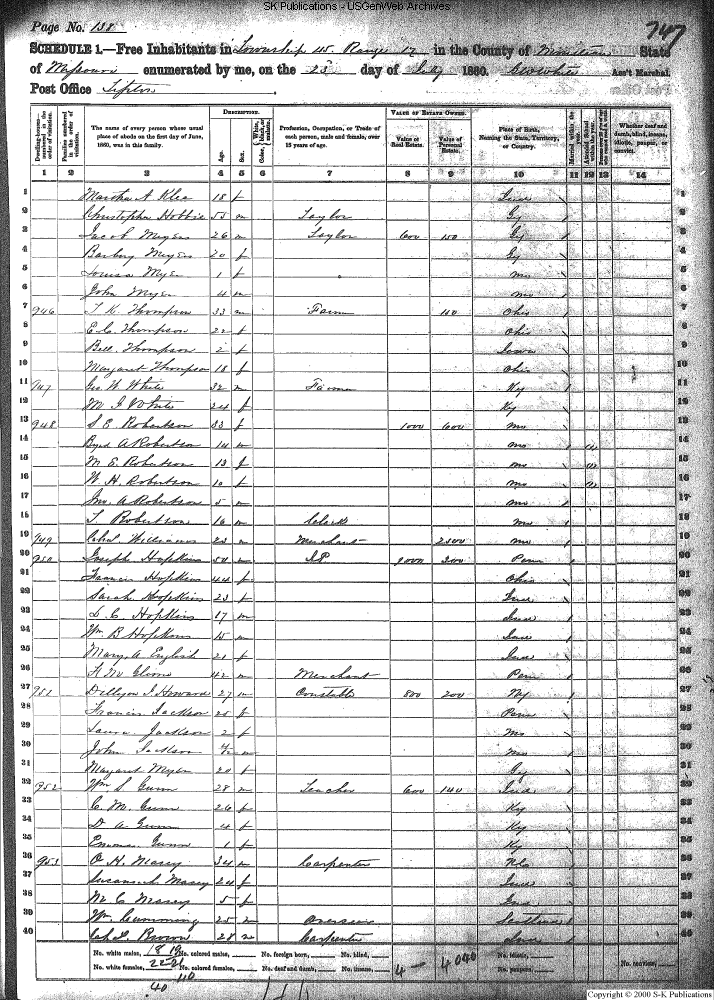 SK Publications - USGenWeb Archives
Page No. 138
747
SCHEDULE 1.—Free Inhabitants in Township 45 Range 17 in the County of State
of Missouri enumerated by me, on the 23 day of July 1860. Ass't Marshal.
Post Office Tipton
Dwelling-houses—numbered in the order of visitation.
Families numbered in the order of visitation.
The name of every person whose usual place of abode on the first day of June, 1860, was in this family.
DESCRIPTION.
Age.
Sex.
Color, White, black, or mulatto.
Profession, Occupation, or Trade of each person, male and female, over 15 years of age.
VALUE OF ESTATE OWNED.
Value of Real Estate.
Value of Personal Estate.
Place of Birth, Naming the State, Territory, or Country.
Married within the year.
Attended School within the year.
Whether deaf and dumb, blind, insane, idiotic, pauper, or convict.
1 2 3 4 5 6 7 8 9 10 11 12 13 14
1 Martha A 18 f Ind 1
2 Christopher Hobbie 55 m Taylor Gy 2
3 Jacob Myers 26 m Taylor 600 150 Gy 3
4 Barbary Myers 20 f Gy 4
5 Louisa Myer 1 f Mo 5
6 John Myer 4 m Mo 6
7 946 T. K. Thompson 33 m Farm 40 Ohio 7
8 E. C. Thompson 22 f Ohio 8
9 Bell Thompson 2 f Iowa 9
10 Margaret Thompson 18 f Ohio 10
11 947 Geo. W White 32 m Farmer Ky 11
12 M. J White 24 f Ky 12
13 948 S. E. Robertson 33 f 1000 600 Mo 13
14 Byrd A Robertson 14 m Mo 14
15 M. E. Robertson 13 f Mo 15
16 W. H. Robertson 10 f Mo 16
17 Jno. A Robertson 5 m Mo 17
18 T. Robertson 16 m Clerk Mo 18
19 949 Williams 23 m Merchant 2500 Mo 19
20 950 Joseph Hopkins 50 m J.P 2000 300 Penn 20
21 Francis Hopkins 44 f Ohio 21
22 Sarah Hopkins 23 f Ind 22
23 L. C. Hopkins 17 m Ind 23
24 Wm. B Hopkins 15 m Ind 24
25 Mary A English 21 f Ind 25
26 42 m Merchant Penn 26
27 951 J Howard 27 m Constable 800 200 Ny 27
28 Francis Jackson 25 f Penn 28
29 Laura Jackson 2 f Mo 29
30 John Jackson m Mo 30
31 Margaret Myer 20 f Gy 31
32 952 Wm S Gunn 28 m Teacher 600 140 Ind 32
33 C. M. Gunn 26 f Ky 33
34 D. A. Gunn 4 f Ky 34
35 Gunn 1 f Ky 35
36 953 O H. Massey 34 m Carpenter NC 36
37 Susannah Massey 24 f Ind 37
38 M. C Massey 5 f Ind 38
39 Wm. Cumming 25 m Overseer Scotland 39
40 Brown 28 m Carpenter Ind 40
No. white males, 18 19 No. colored males, No. foreign born, No. blind,
No. white females, 22 21 No. colored females, No. deaf and dumb, No. insane, 4 4040
No. idiotic, No. paupers, No. convicts,
40
Copyright © 2000 S-K Publications